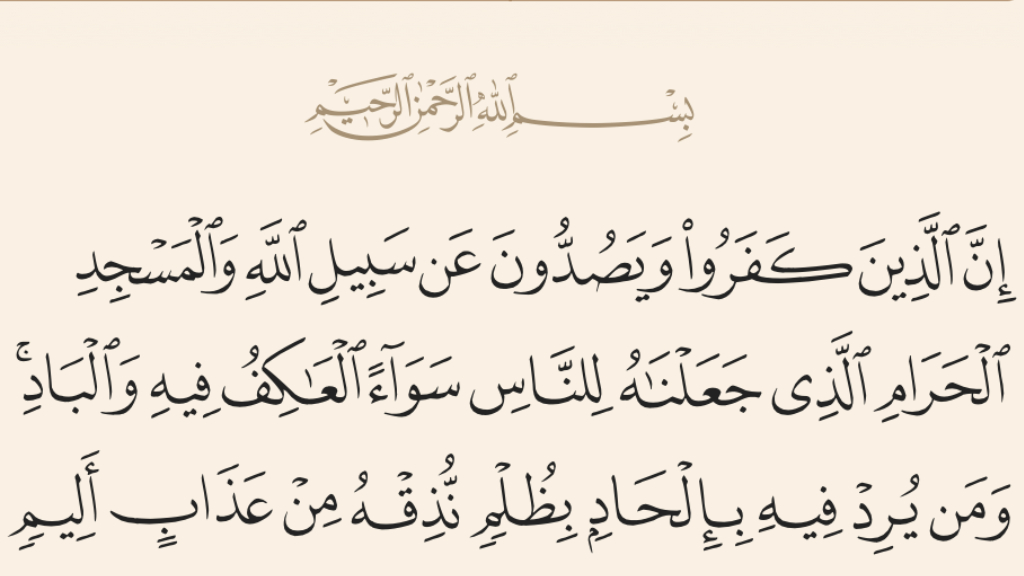 بِسْمِ ٱللَّهِ ٱلرَّحْمَٰنِ ٱلرَّحِيمِ
إِنَّ ٱلَّذِينَ كَفَرُوا۟ وَيَصُدُّونَ عَن سَبِيلِ ٱللَّهِ وَٱلْمَسْجِدِ
ٱلْحَرَامِ ٱلَّذِى جَعَلْنَـٰهُ لِلنَّاسِ سَوَآءً ٱلْعَـٰكِفُ فِيهِ وَٱلْبَادِ ۚ
وَمَن يُرِدْ فِيهِ بِإِلْحَادٍۭ بِظُلْمٍۢ نُّذِقْهُ مِنْ عَذَابٍ أَلِيمٍۢ